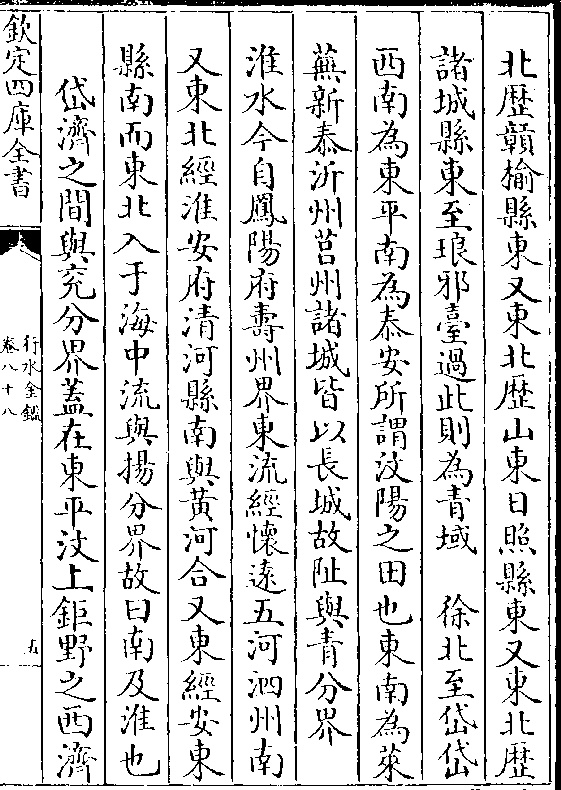 北歴贛榆縣東又東北歴山東日照縣東又東北歴
諸城縣東至琅邪臺過此則為青域　徐北至岱岱
西南為東平南為泰安所謂汶陽之田也東南為萊
蕪新泰沂州莒州諸城皆以長城故阯與青分界
淮水今自鳳陽府壽州界東流經懷遠五河泗州南
又東北經淮安府清河縣南與黃河合又東經安東
縣南而東北入于海中流與揚分界故曰南及淮也
岱濟之間與兖分界蓋在東平汶上鉅野之西濟
欽定四庫全書
行水金鑑
卷八十八
五